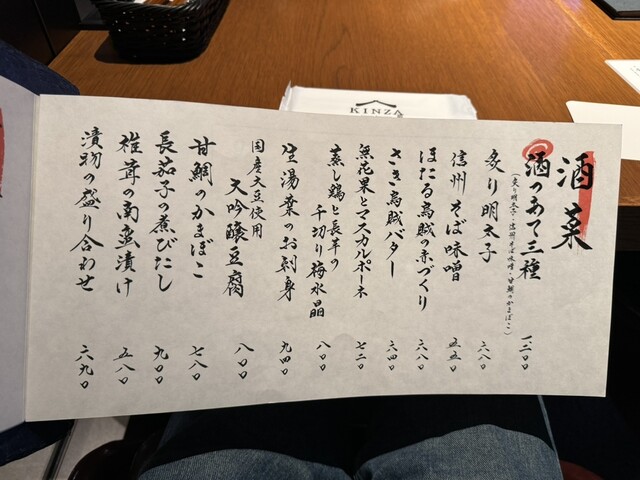 酒菜
酒のあて三種
(炙り明太子・信州そば味噌・甘鯛のかまぼこ)
一二〇〇
炙り明太子
六八〇
信州そば味噌
五五〇
ほたる烏賊の赤づくり
六八〇
さき烏賊バター
六四〇
無花果とマスカルポーネ
七二〇
蒸し鶏と長芋の
千切り梅水晶
八〇〇
生湯葉のお刺身
九四〇
国産大豆使用
大吟醸豆腐
八〇〇
甘鯛のかまぼこ
七八〇
長茄子の煮びたし
九〇〇
椎茸の南蛮漬け
五八〇
漬物の盛り合わせ
六九〇
KINZA